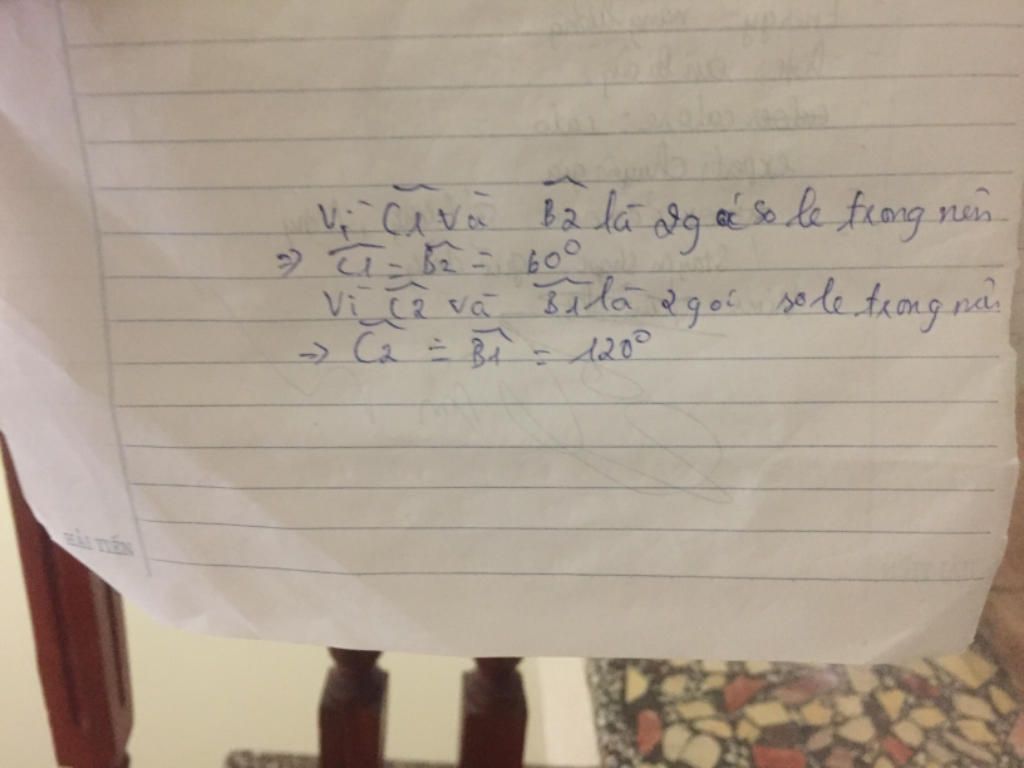 Vì Ĉ1 và B̂2 là 2 góc so le trong nên
=> Ĉ1 = B̂2 = 60°
Vì Ĉ2 và B̂1 là 2 goi so le trong nên
-> Ĉ2 = B̂1 = 120°
HẢI TIẾN